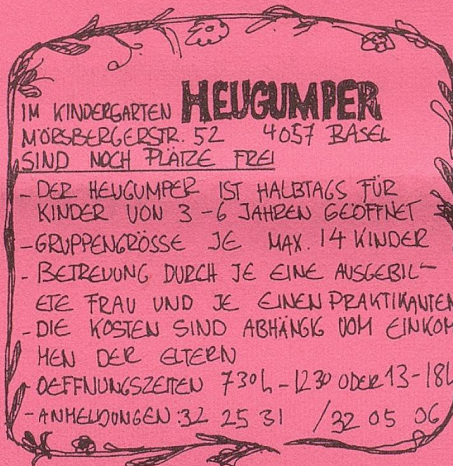 IM KINDERGARTEN HEUGUMPER
MÖRSBERGERSTR. 52 4057 BASEL
SIND NOCH PLÄTZE FREI
- DER HEUGUMPER IST HALBTAGS FÜR
KINDER VON 3-6 JAHREN GEÖFFNET
- GRUPPENGRÖSSE JE MAX. 14 KINDER
- BETREUUNG DURCH JE EINE AUSGEBIL-
ETE FRAU UND JE EINEN PRAKTIKANTEN
- DIE KOSTEN SIND ABHÄNGIG VOM EINKOM
MEN DER ELTERN
- OEFFNUNGSZEITEN 730h - 1230 ODER 13-18h
- ANMELDUNGEN: 32 25 31 / 32 05 06